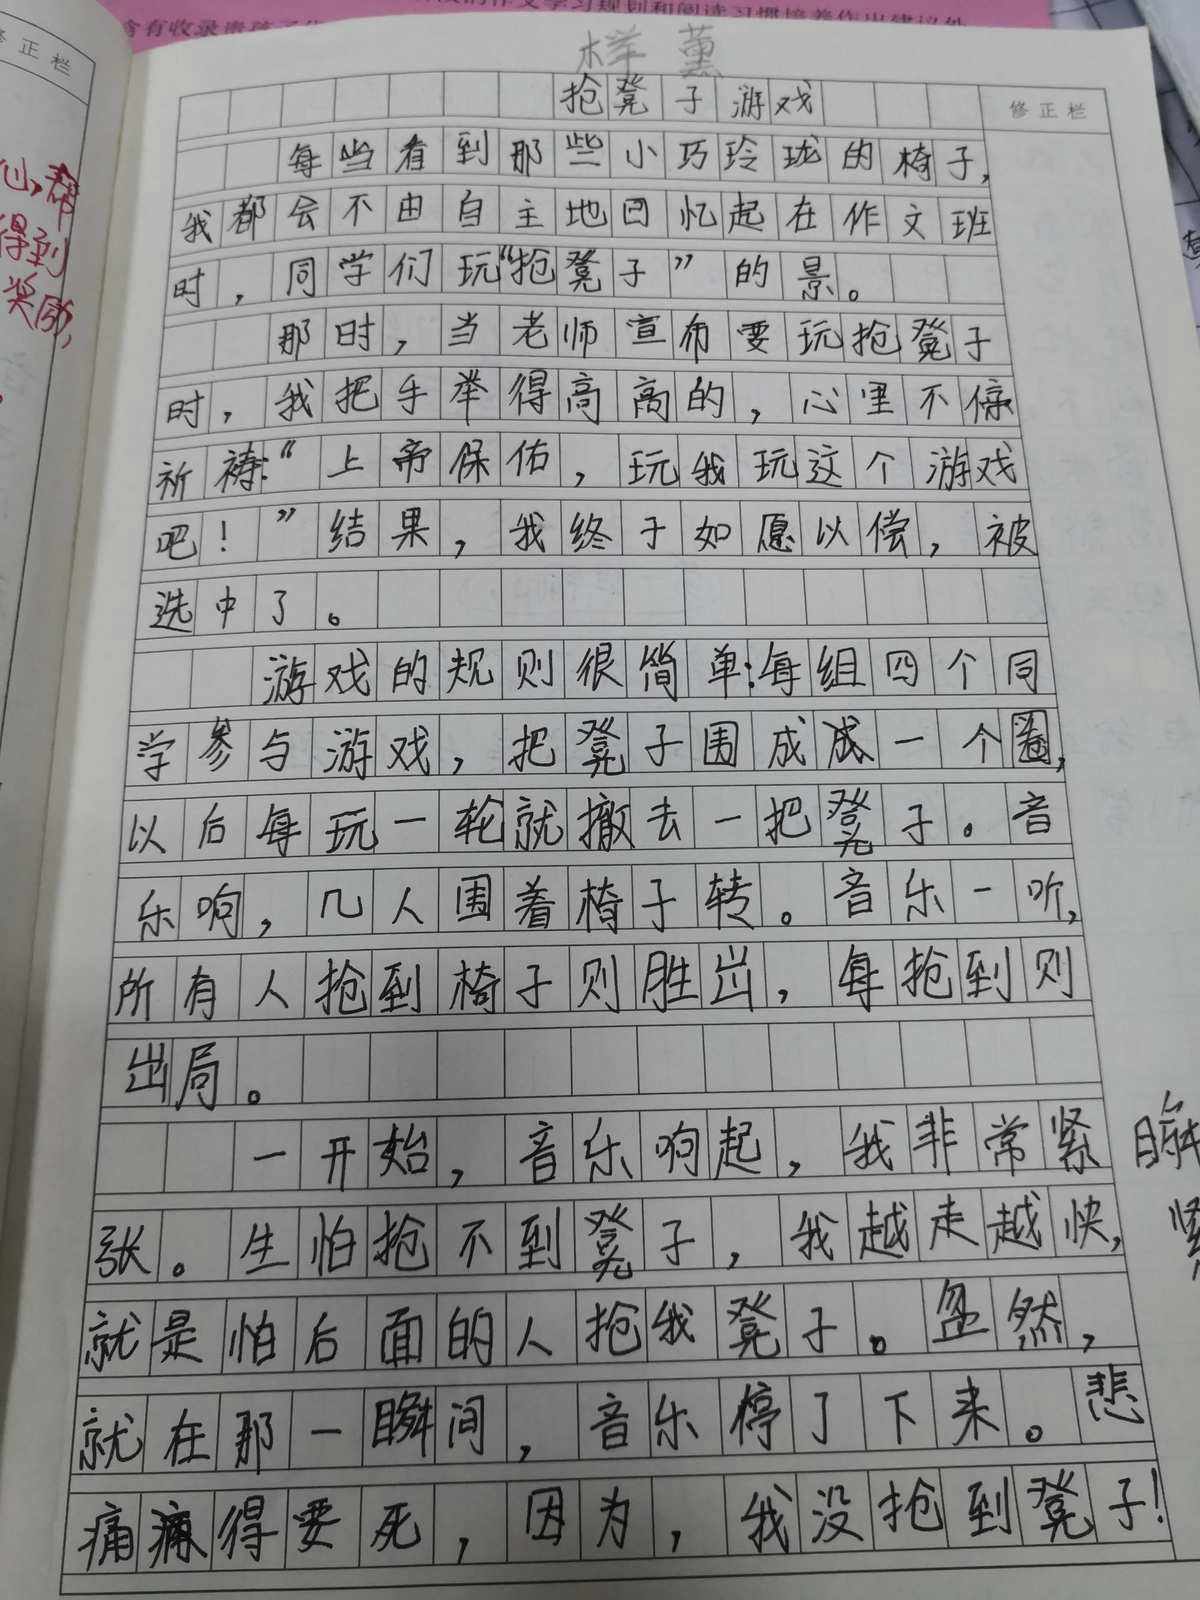 修正栏
仙,帮
得到
奖励,
样薰
抢凳子游戏
修正栏
每当看到那些小巧玲珑的椅子,
我都会不由自主地回忆起在作文班
时,同学们玩“抢凳子”的景。
那时,当老师宣布要玩抢凳子
时,我把手举得高高的,心里不停
祈祷:“上帝保佑,玩我玩这个游戏
吧!”结果,我终于如愿以偿,被
选中了。
游戏的规则很简单:每组四个同
学参与游戏,把凳子围成成一个圈,
以后每玩一轮就撤去一把凳子。音
乐响,几人围着椅子转。音乐一听,
所有人抢到椅子则胜出,每抢到则
出局。
一开始,音乐响起,我非常紧
张。生怕抢不到凳子,我越走越快,
就是怕后面的人抢我凳子。忽然,
就在那一瞬间,音乐停了下来。悲
痛痛得要死,因为,我没抢到凳子!
瞬
紧